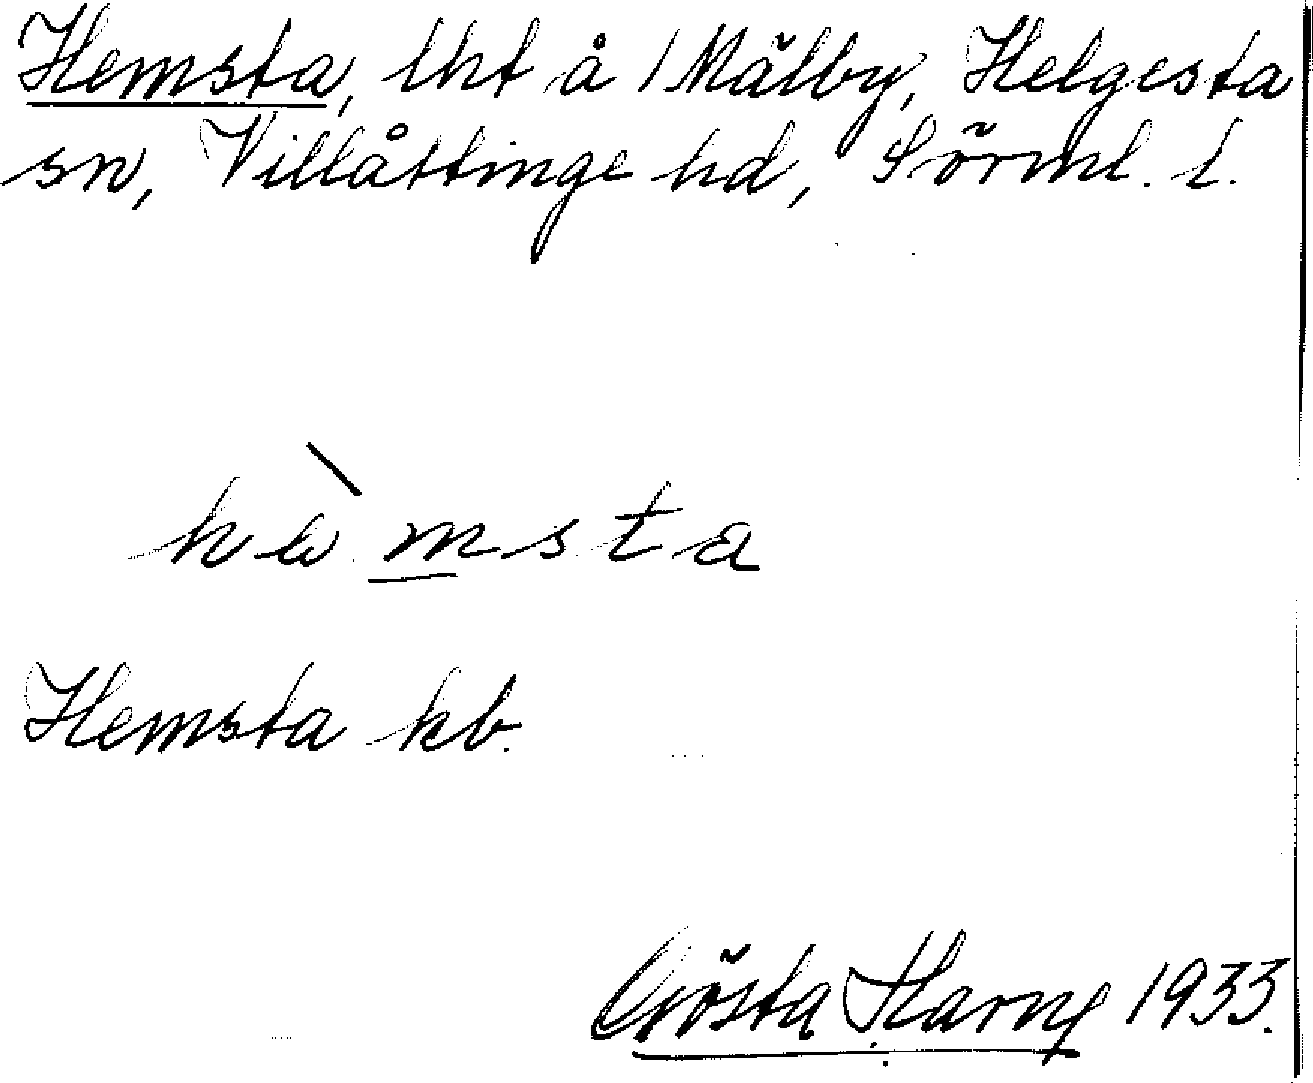 Hemsta, lht å 1 Målby, Helgesta
sn, Villåttinge hd, Sörml. l.
hèmsta
Hemsta kb.
Gösta Harng 1933.